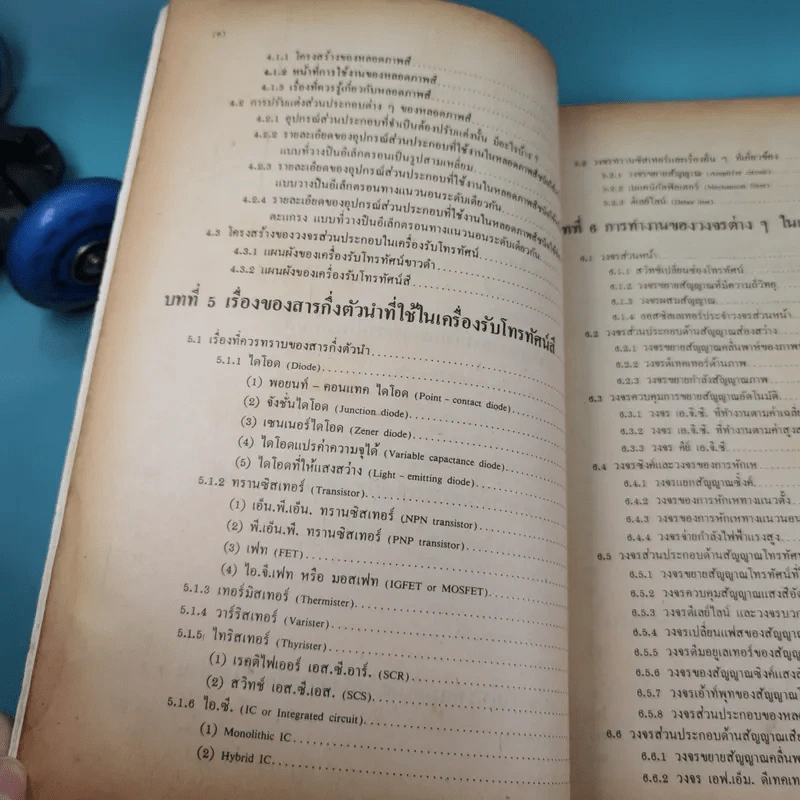 4.1.1 โครงสร้างของหลอดภาพสี
4.1.2 หน้าที่การใช้งานของหลอดภาพสี
4.1.3 เรื่องที่ควรรู้เกี่ยวกับหลอดภาพสี
4.2 การปรับแต่งส่วนประกอบต่าง ๆ ของหลอดภาพสี
4.2.1 อุปกรณ์ส่วนประกอบที่จำเป็นต้องปรับแต่งนั้น มีอะไรบ้าง ๆ
4.2.2 รายละเอียดของอุปกรณ์ส่วนประกอบที่ใช้งานในหลอดภาพสี
แบบที่วางปืนอีเล็กตรอนเป็นรูปสามเหลี่ยม
4.2.3 รายละเอียดของอุปกรณ์ส่วนประกอบที่ใช้งานในหลอดภาพสี
แบบวางปืนอีเล็กตรอนทางแนวนอนระดับเดียวกัน
4.2.4 รายละเอียดของอุปกรณ์ส่วนประกอบที่ใช้งานในหลอดภาพสี
ตะแกรง แบบที่วางปืนอีเล็กตรอนทางแนวนอนระดับเดียวกัน
4.3 โครงสร้างของวงจรส่วนประกอบในเครื่องรับโทรทัศน์
4.3.1 แผนผังของเครื่องรับโทรทัศน์ขาวดำ
4.3.2 แผนผังของเครื่องรับโทรทัศน์สี
บทที่ 5 เรื่องของสารกึ่งตัวนำที่ใช้ในเครื่องรับโทรทัศน์สี
5.1 เรื่องที่ควรทราบของสารกึ่งตัวนำ
5.1.1 ไดโอด (Diode)
(1) พอยนท์ – คอนแทค ไดโอด (Point – contact diode)
(2) จังชั่นไดโอด (Junction diode)
(3) เซนเนอร์ไดโอด (Zener diode)
(4) ไดโอดแปรค่าความจุได้ (Variable capactance diode)
(5) ไดโอดที่ให้แสงสว่าง (Light – emitting diode)
5.1.2 ทรานซิสเทอร์ (Transistor)
(1) เอ็น.พี.เอ็น. ทรานซิสเทอร์ (NPN transistor)
(2) พี.เอ็น.พี. ทรานซิสเทอร์ (PNP transistor)
(3) เฟท (FET)
(4) ไอ.จี.เฟท หรือ มอสเฟท (IGFET or MOSFET)
5.1.3 เทอร์มิสเทอร์ (Thermister)
5.1.4 วาร์ริสเทอร์ (Varister)
5.1.5 ไทริสเทอร์ (Thyrister)
(1) เรคติไฟเออร์ เอส.ซี.อาร์. (SCR)
(2) สวิทช์ เอส.ซี.เอส. (SCS)
5.1.6 ไอ.ซี. (IC or Integrated circuit)
(1) Monolithic IC
(2) Hybrid IC
5.2 วงจรทรานซิสเทอร์และเรื่องอื่น ๆ ที่เกี่ยวข้อง
5.2.1 วงจรขยายสัญญาณ
5.2.2 เมคคานิกัลฟิลเตอร์ (Mechanical filter)
5.2.3 ดีเลย์ไลน์ (Delay line)
บทที่ 6 การทำงานของวงจรต่าง ๆ
6.1 วงจรส่วนหน้า
6.1.1 สวิทช์เปลี่ยนช่องโทรทัศน์
6.1.2 วงจรขยายสัญญาณที่มีความถี่วิทยุ
6.1.3 วงจรผสมสัญญาณ
6.1.4 ออสซิลเลเทอร์ประจำวงจรส่วนหน้า
6.2 วงจรส่วนประกอบด้านสัญญาณส่องสว่าง
6.2.1 วงจรขยายสัญญาณคลื่นพาห์ของภาพ
6.2.2 วงจรดีเทคเทอร์ด้านภาพ
6.2.3 วงจรขยายกำลังสัญญาณภาพ
6.3 วงจรควบคุมการขยายสัญญาณอัตโนมัติ
6.3.1 วงจร เอ.จี.ซี. ที่ทำงานตามค่าเฉลี่ย
6.3.2 วงจร เอ.จี.ซี. ที่ทำงานตามค่าสูง
6.3.3 วงจร คีย์ เอ.จี.ซี.
6.4 วงจรซิงค์และวงจรของการหักเห
6.4.1 วงจรแยกสัญญาณซิ้งค์
6.4.2 วงจรของการหักเหทางแนวตั้ง
6.4.3 วงจรของการหักเหทางแนวนอน
6.4.4 วงจรจ่ายกำลังไฟฟ้าแรงสูง
6.5 วงจรส่วนประกอบด้านสัญญาณโทรทัศน์
6.5.1 วงจรขยายสัญญาณโทรทัศน์ที่
6.5.2 วงจรควบคุมสัญญาณแสงสี
6.5.3 วงจรดีเลย์ไลน์ และวงจรบวก
6.5.4 วงจรเปลี่ยนเฟสของสัญญาณ
6.5.5 วงจรดีมอยูเลเทอร์ของสัญญาณ
6.5.6 วงจรของสัญญาณซิงค์แสงสี
6.5.7 วงจรเอ้าท์พุทของสัญญาณ
6.5.8 วงจรส่วนประกอบของหลอด
6.6 วงจรส่วนประกอบด้านสัญญาณเสียง
6.6.1 วงจรขยายสัญญาณคลื่น
6.6.2 วงจร เอฟ.เอ็ม. ดีเทค